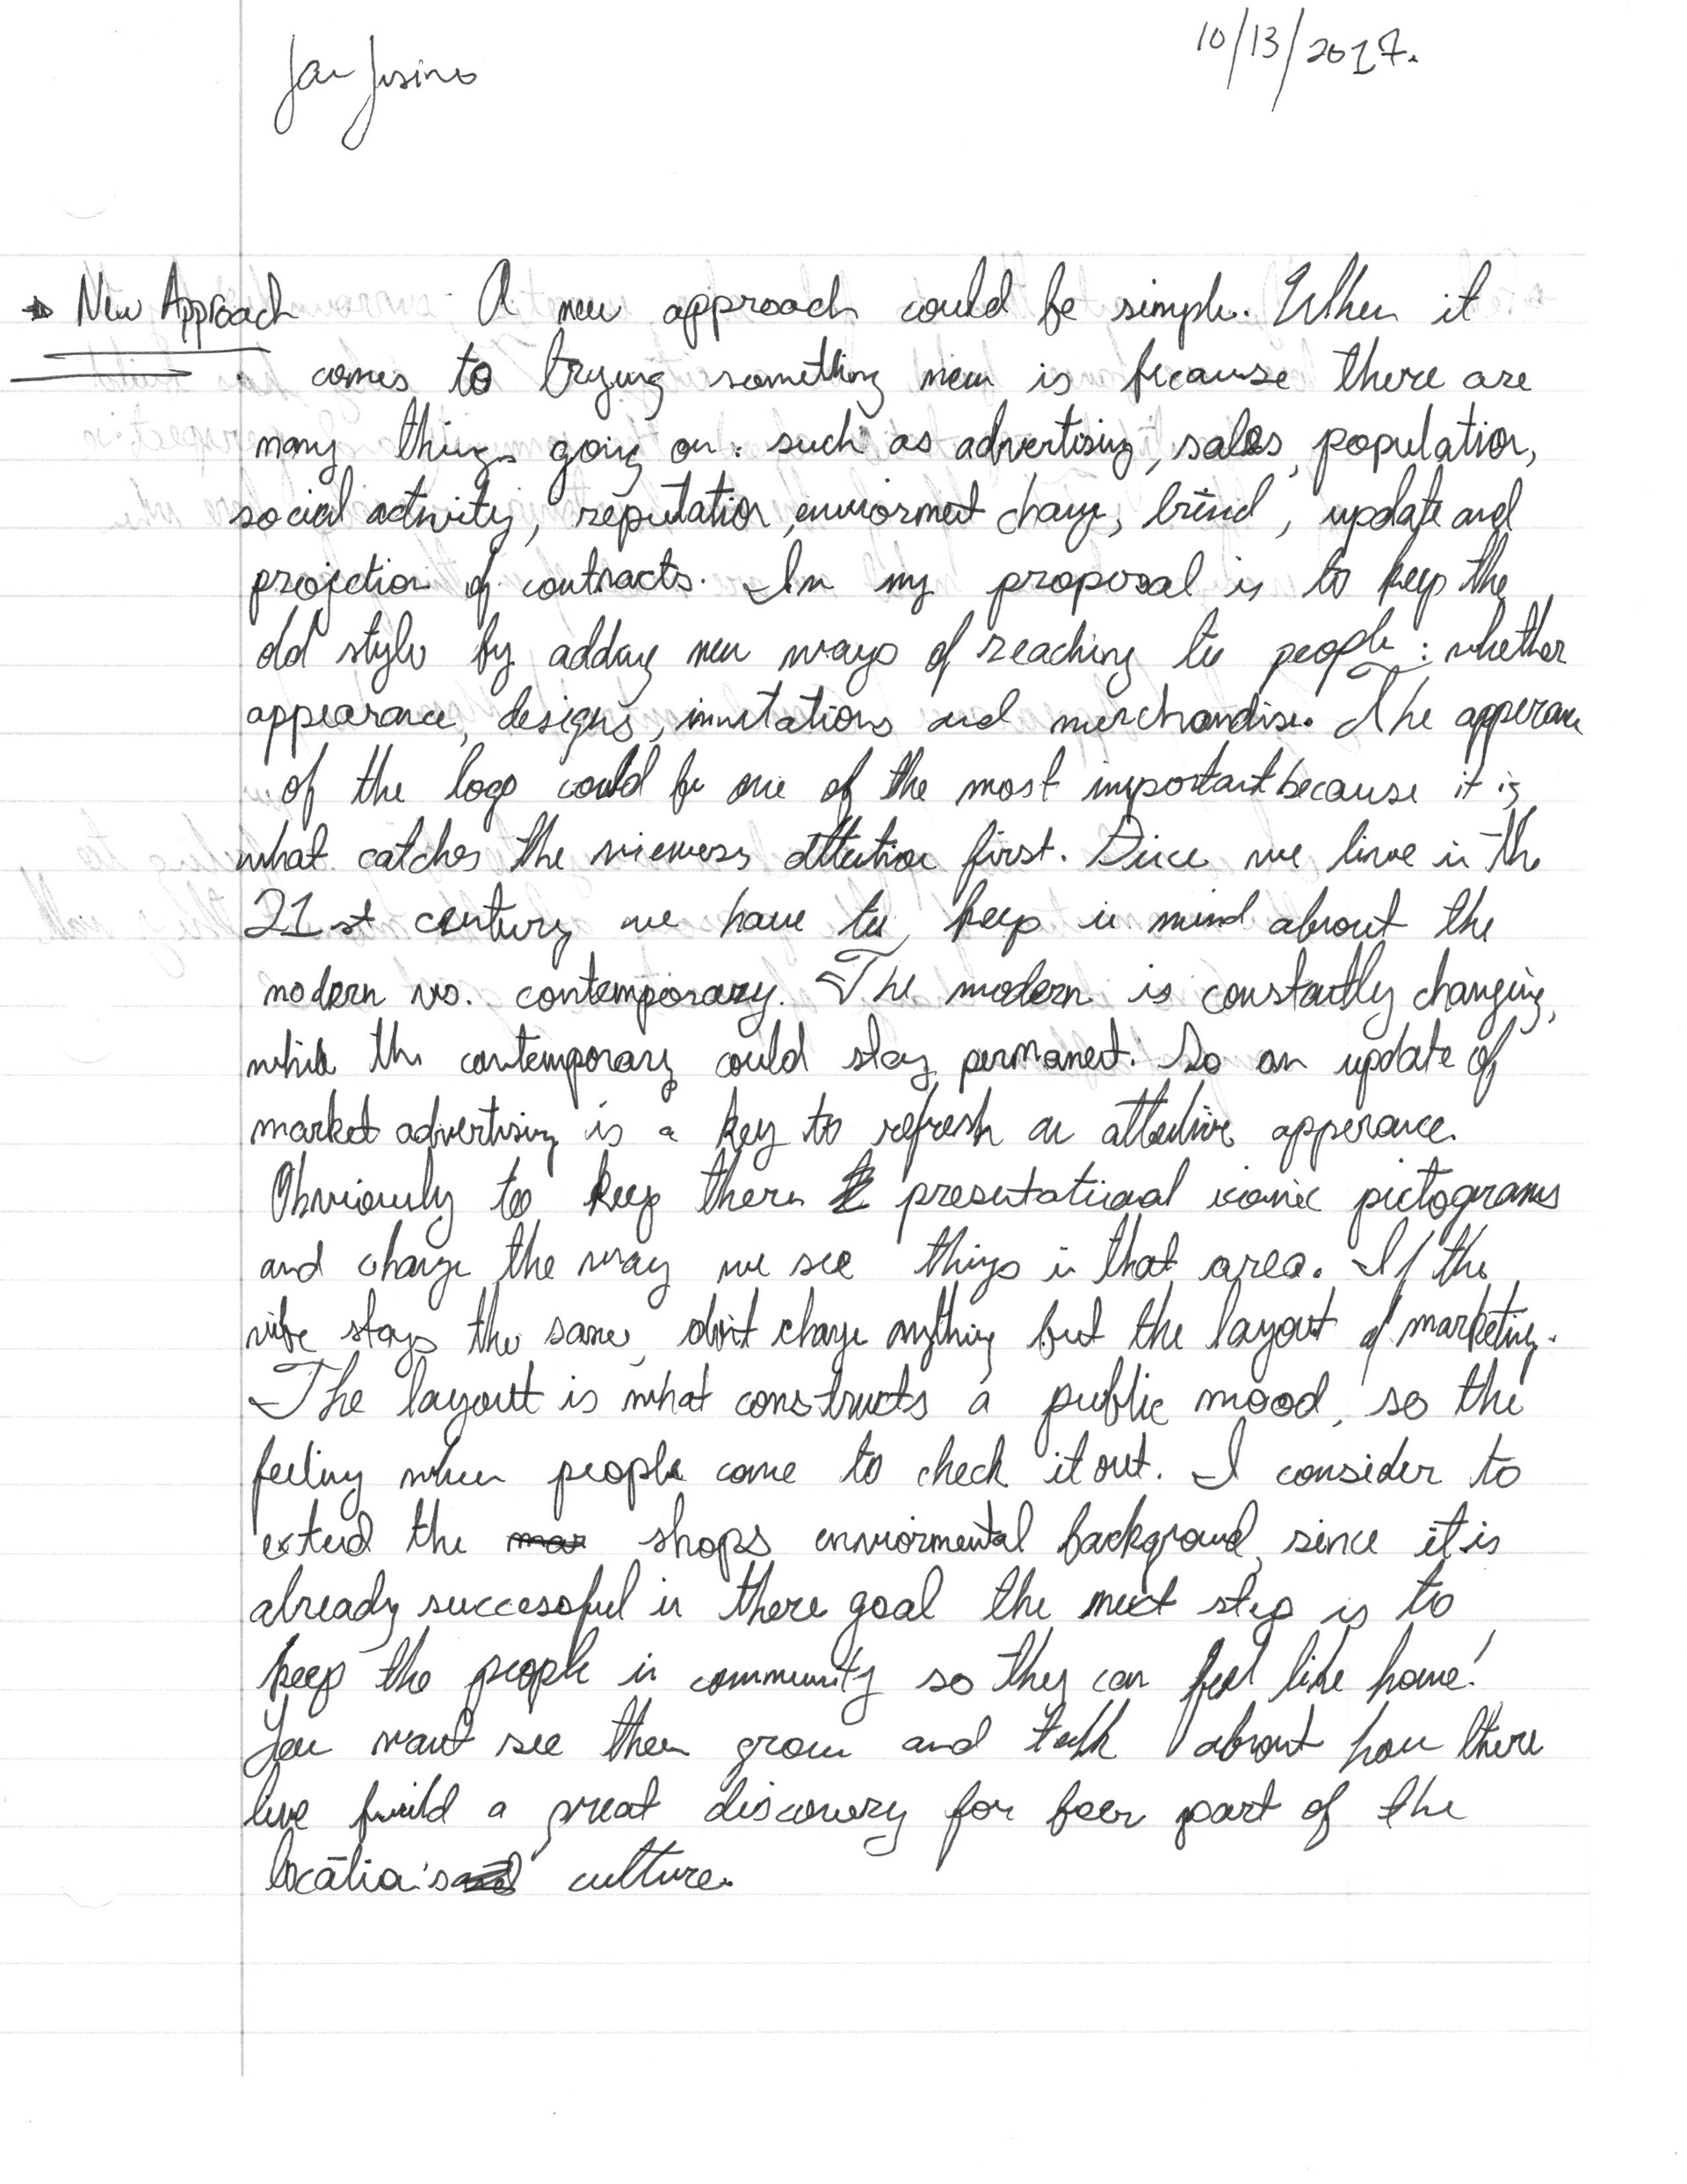 Jan Jusino
10/13/2017.
New Approach
A new approach could be simple. When it
comes to trying something new is because there are
many things going on: such as advertising, sales, population,
social activity, reputation, enviorment change, trend, update and
projection of contracts. In my proposal is to keep the
old style by adding new ways of reaching to people: whether
appearance, designs, invitations and merchandise. The apperance
of the logo could be one of the most important because it is
what catches the viewers attention first. Since we live in the
21st century we have to keep in mind about the
modern vs. contemporary. The modern is constantly changing,
while the contemporary could stay permanent. So an update of
market advertising is a key to refresh an attentive apperance.
Obviously to keep there presentational iconic pictograms
and change the way we see things in that area. If the
vibe stays the same, don't change anything but the layout of marketing.
The layout is what constructs a public mood, so the
feeling when people come to check it out. I consider to
extend the shops enviormental background, since it is
already successful in there goal the next step is to
keep the people in community so they can feel like home!
You want see them grow and talk about how there
live build a great discovery for beer part of the
location's culture.